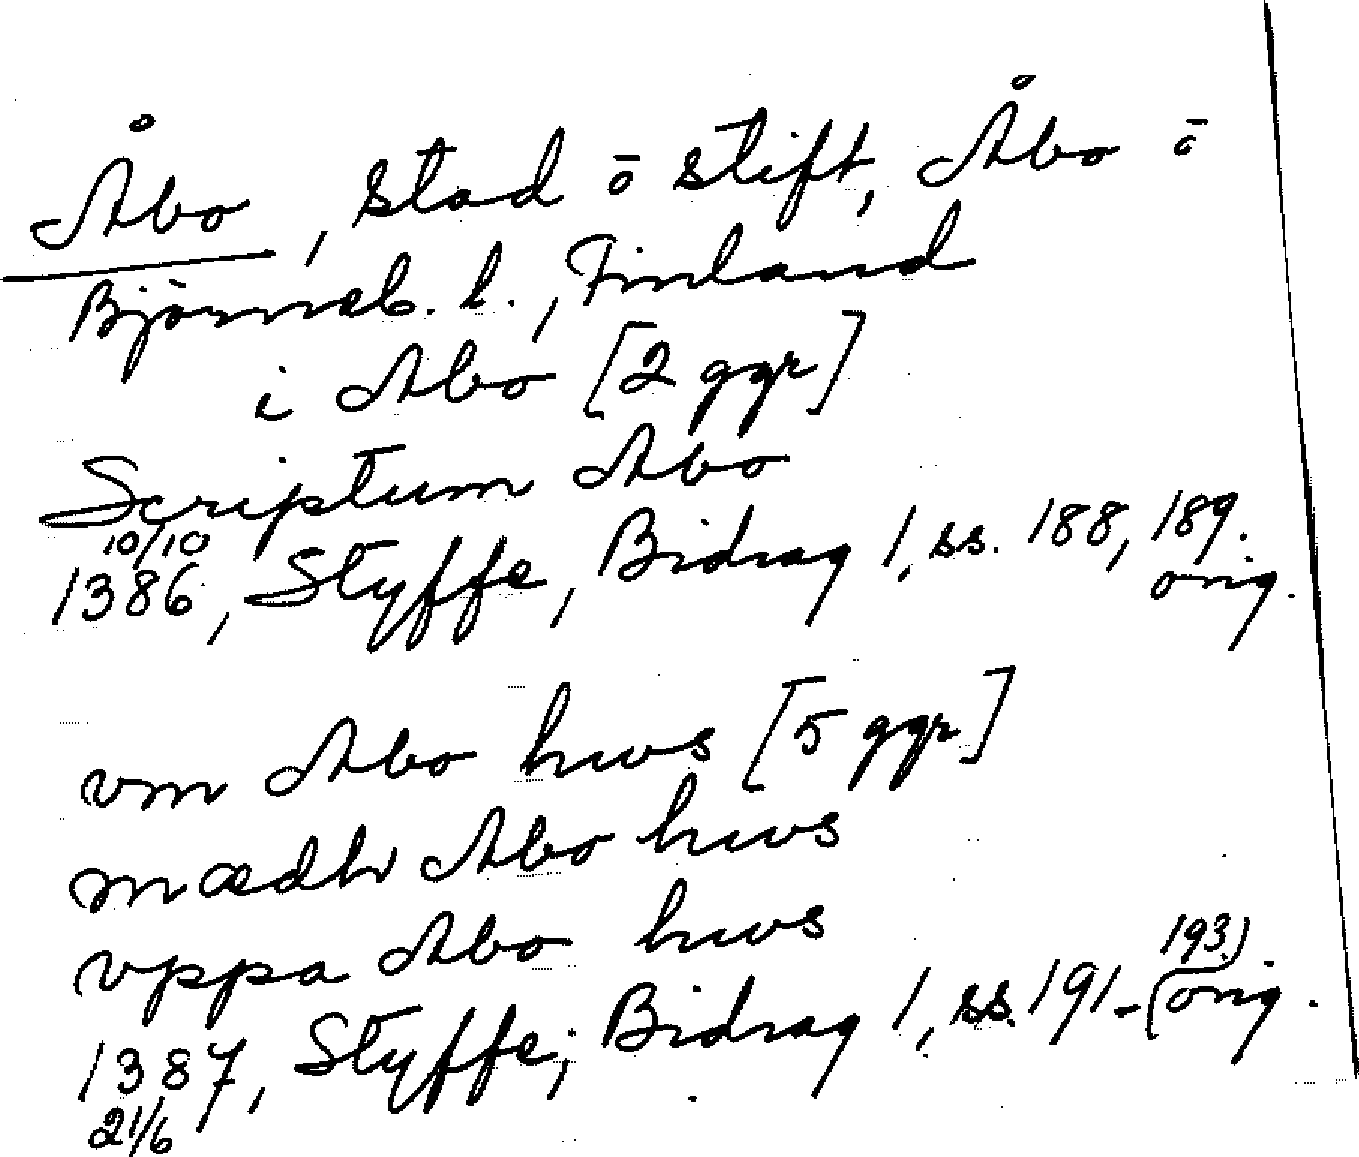 Åbo, stad ō stift, Åbo ō
Björneb. l., Finland
i Abo [2 ggr]
Scriptum Abo
10/10
1386, Styffe, Bidrag 1, ss. 188, 189.
orig.
vm Abo hws [5 ggr]
mædh Abo hws
vppa Abo hws
1387, Styffe, Bidrag 1, ss. 191-193.
orig.
21/6